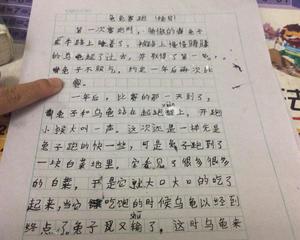 龟兔赛跑 续写
第一次赛跑时，骄傲的兔子
在半路上睡着了，被路上慢慢腾腾
的乌龟超了过去，并取得了第一名，
兔子不服气，约定一年后再次比
赛。
一年后，比赛的那一天到了，
兔子和乌龟站在起跑线上，开跑
小猴大叫一声。这次还是一样先是
兔子跑的快一些，可是兔子跑到了
一块白菜地里，它看见了很多很多
的白菜，于是它就大口大口的吃了
起来，当它 吃饱的时候乌龟以经到
shū
终点了兔子是又输了。这时乌龟来